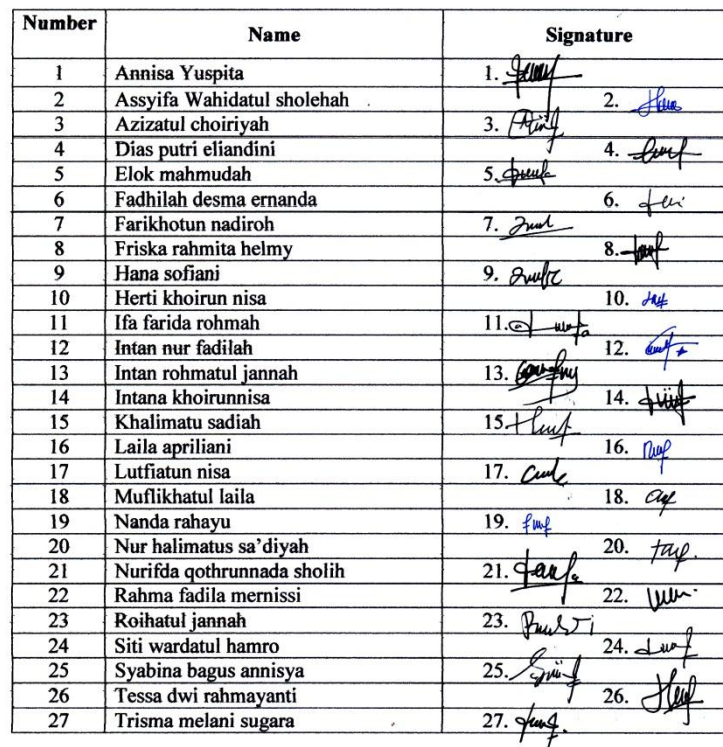 Number Name Signature
1 Annisa Yuspita 1.
2 Assyifa Wahidatul sholehah 2.
3 Azizatul choiriyah 3.
4 Dias putri eliandini 4.
5 Elok mahmudah 5.
6 Fadhilah desma ernanda 6.
7 Farikhotun nadiroh 7.
8 Friska rahmita helmy 8.
9 Hana sofiani 9.
10 Herti khoirun nisa 10.
11 Ifa farida rohmah 11.
12 Intan nur fadilah 12.
13 Intan rohmatul jannah 13.
14 Intana khoirunnisa 14.
15 Khalimatu sadiah 15.
16 Laila apriliani 16.
17 Lutfiatun nisa 17.
18 Muflikhatul laila 18.
19 Nanda rahayu 19.
20 Nur halimatus sa’diyah 20.
21 Nurifda qothrunnada sholih 21.
22 Rahma fadila mernissi 22.
23 Roihatul jannah 23.
24 Siti wardatul hamro 24.
25 Syabina bagus annisya 25.
26 Tessa dwi rahmayanti 26.
27 Trisma melani sugara 27.